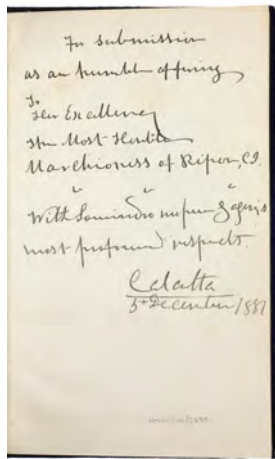 In submission
as an humble offering
To
Her Excellency
The Most Honble
Marchioness of Ripon, CI.
" " "
With
most profound respects.
Calcutta
5th December/1881